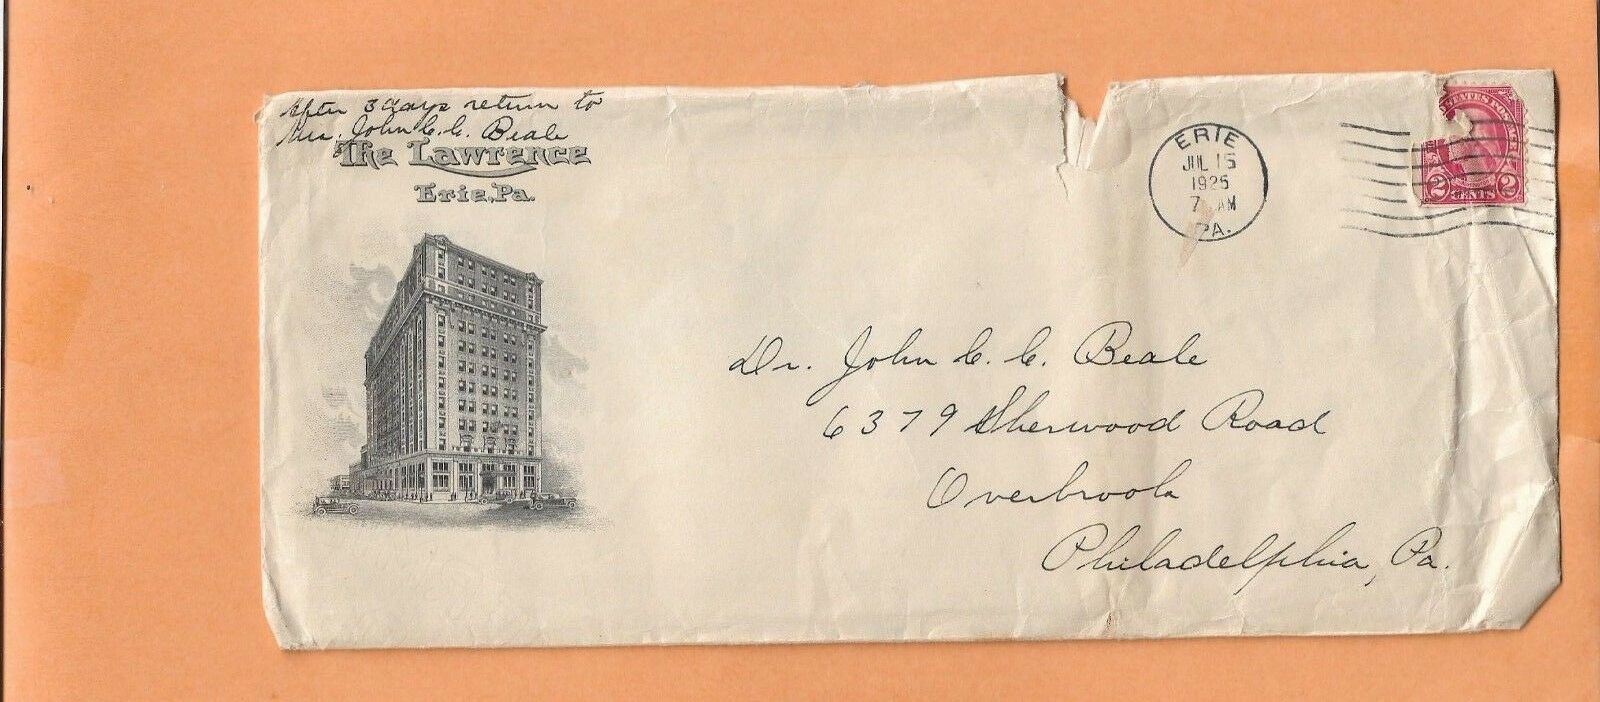 After 3 days return to
Mrs. John C. C. Beale
The Lawrence
Erie, Pa.
ERIE
JUL 15
1925
7 AM
PA.
STATES POSTAGE
2 CENTS 2
Dr. John C. C. Beale
6379 Sherwood Road
Overbrook
Philadelphia, Pa.